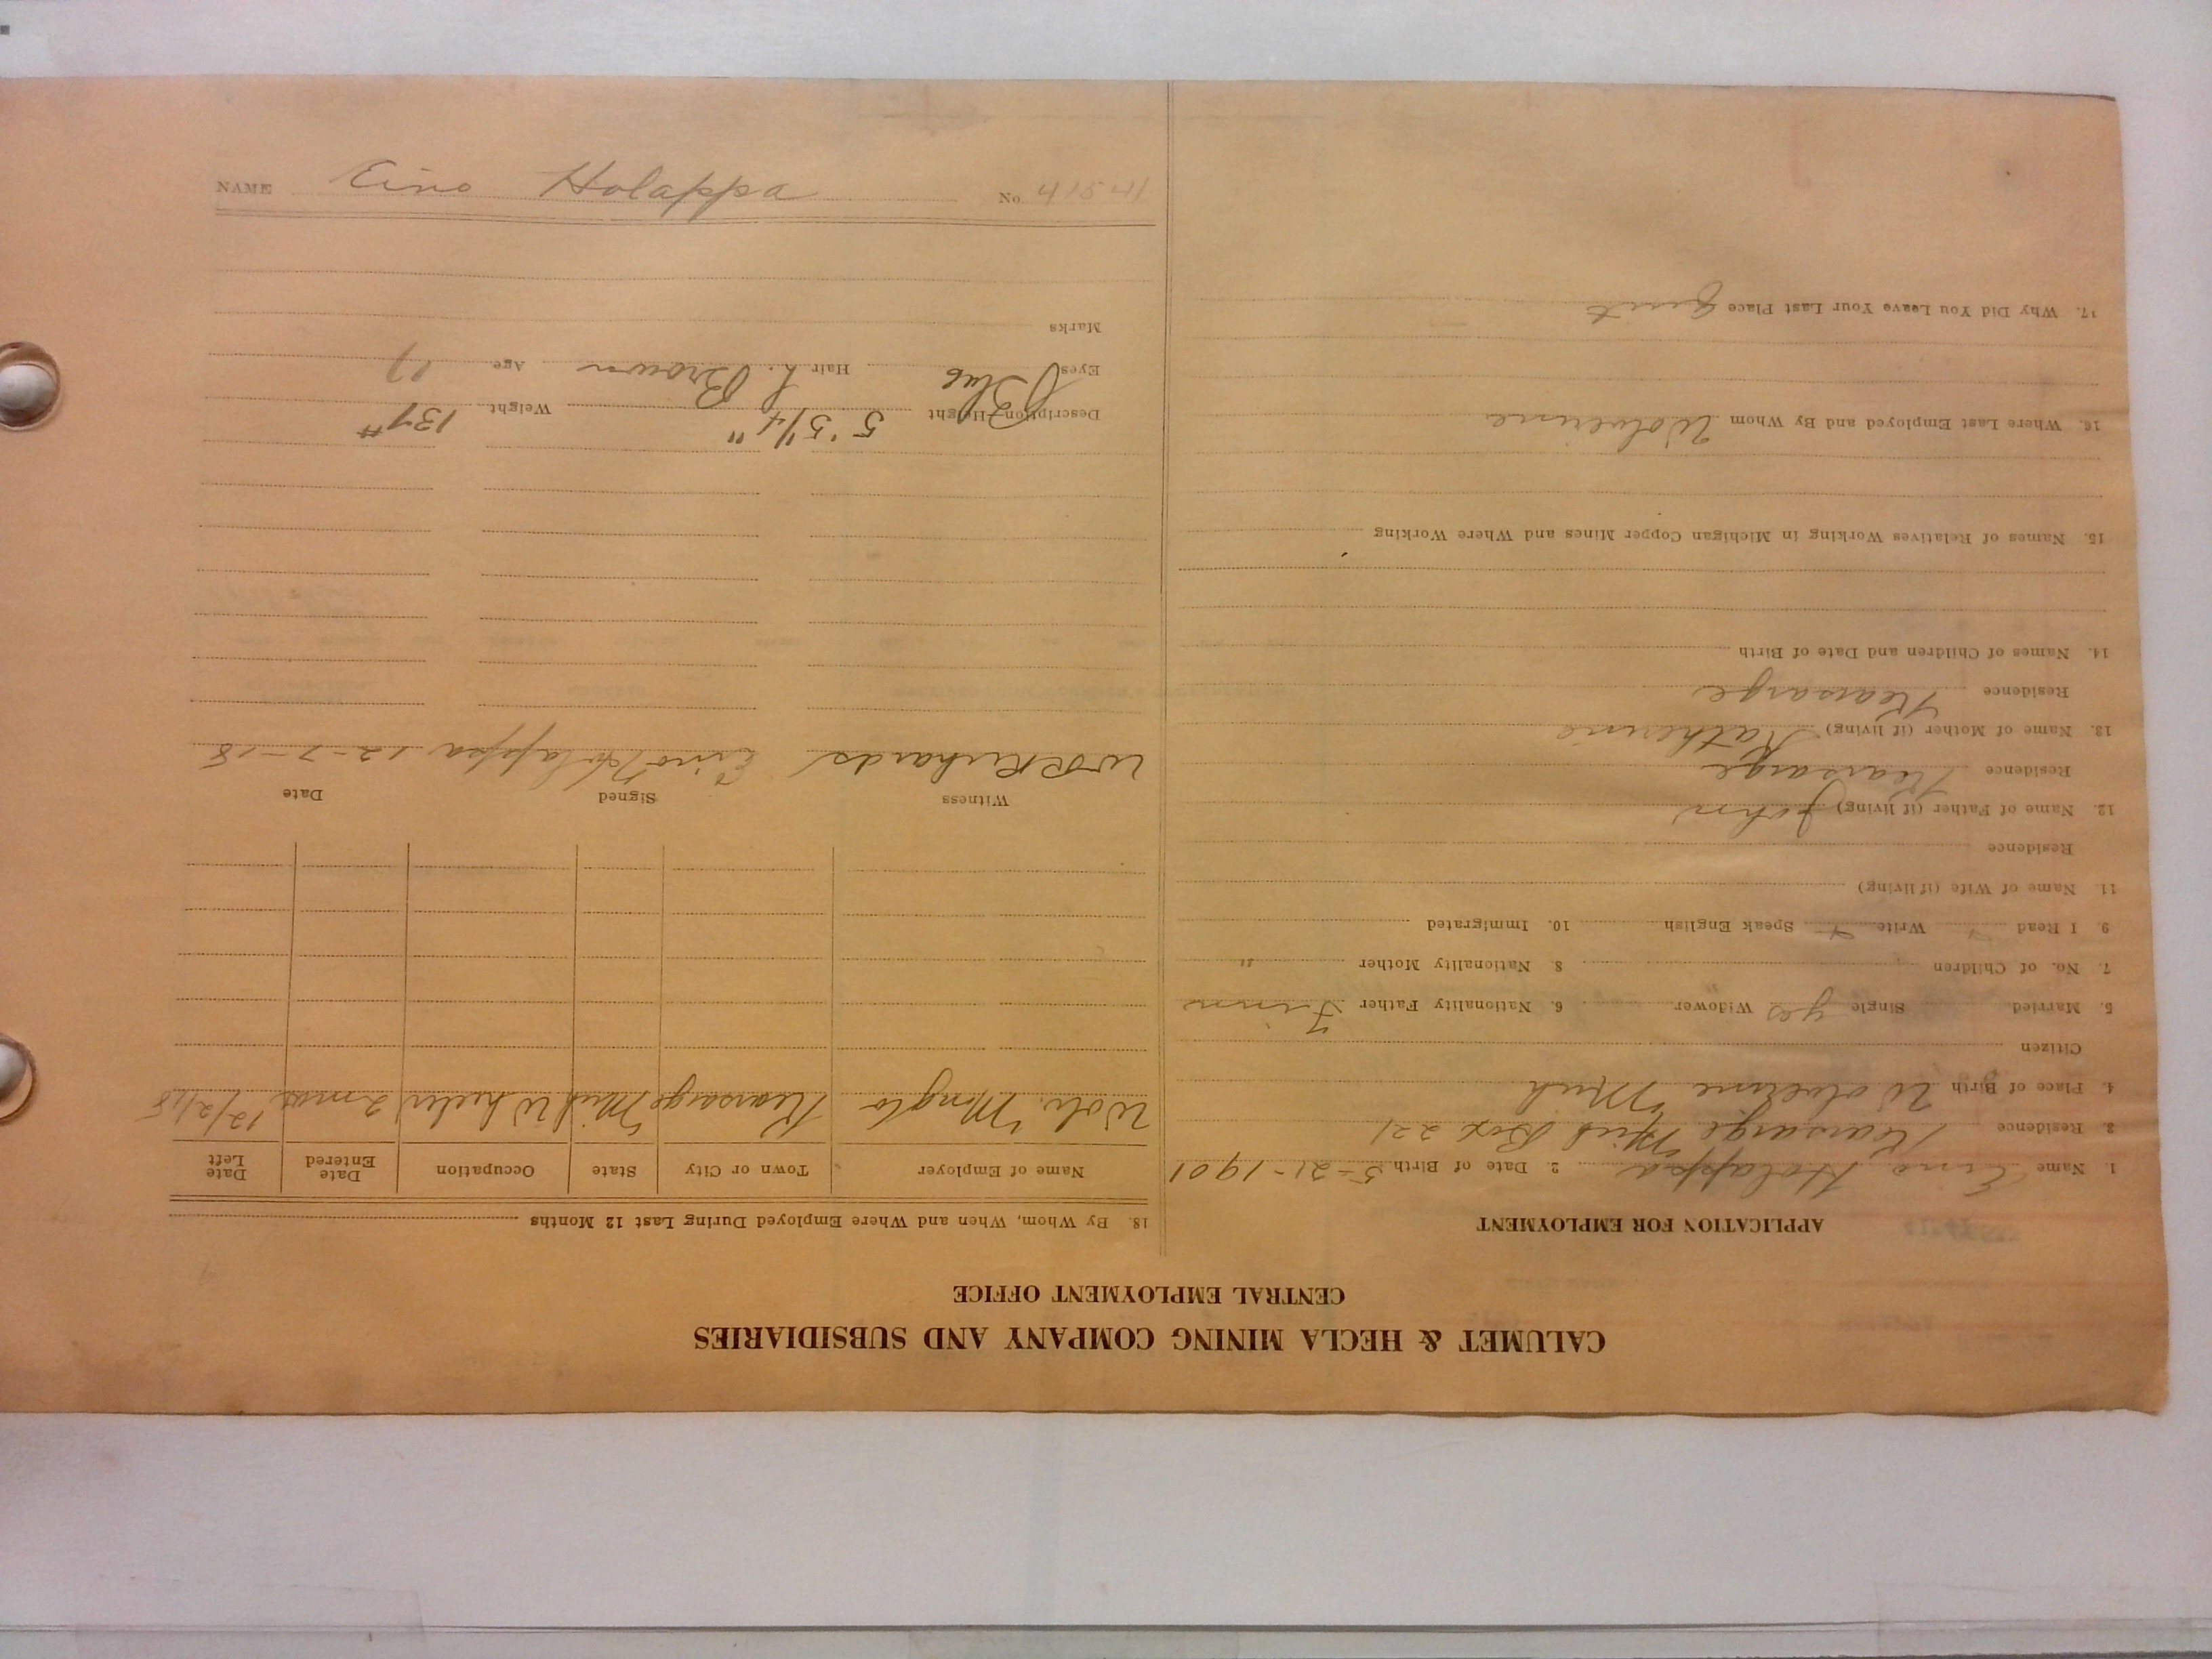 CALUMET & HECLA MINING COMPANY AND SUBSIDIARIES
CENTRAL EMPLOYMENT OFFICE
APPLICATION FOR EMPLOYMENT
1. Name Eino Holappa 2. Date of Birth 5-21-1901
3. Residence Kearsarge Mich Box 221
4. Place of Birth Wolverine Mich
Citizen
5. Married Single yes Widower 6. Nationality Father Finn
7. No. of Children 8. Nationality Mother "
9. I Read Write Speak English 10. Immigrated
11. Name of Wife (if living)
Residence
12. Name of Father (if living) John
Residence Kearsarge
13. Name of Mother (if living) Katherine
Residence Kearsarge
14. Names of Children and Date of Birth
15. Names of Relatives Working in Michigan Copper Mines and Where Working
16. Where Last Employed and By Whom Wolverine
17. Why Did You Leave Your Last Place Quit
18. By Whom, When and Where Employed During Last 12 Months
Name of Employer Town or City State Occupation Date Entered Date Left
Wolv. Mng Co Kearsarge Mich Wheeler 2 mos 12/2/18
Witness Signed Date
W R Richards Eino Holappa 12-7-18
Description—Height 5' 5 1/4" Weight 137#
Eyes Blue Hair L. Brown Age 17
Marks
NAME Eino Holappa No. 41541